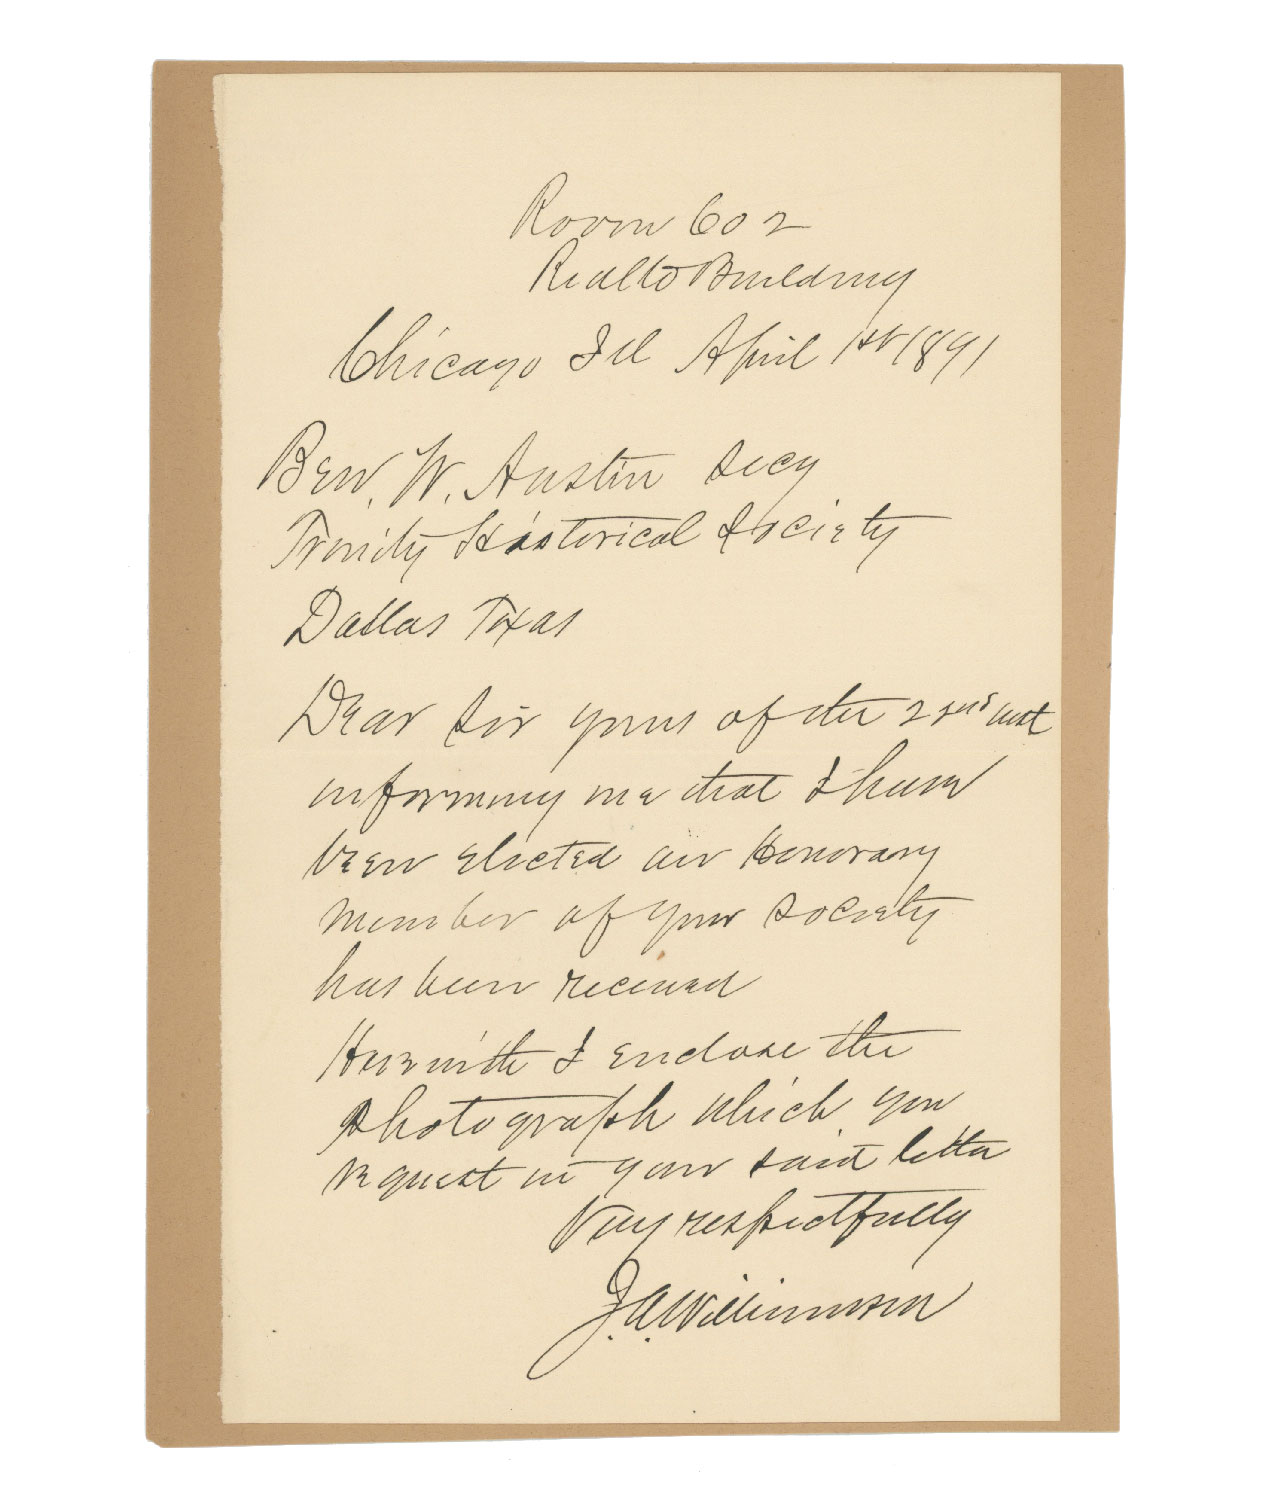 Room 602
Rialto Building
Chicago Ill April 1st 1891
Ben. W. Austin Secy
Trinity Historical Society
Dallas Texas
Dear Sir yours of the 22nd ult
informing me that I have
been elected an Honorary
member of your Society
has been received
Herewith I enclose the
photograph which you
request in your said letter
Very respectfully
J. A. Williamson